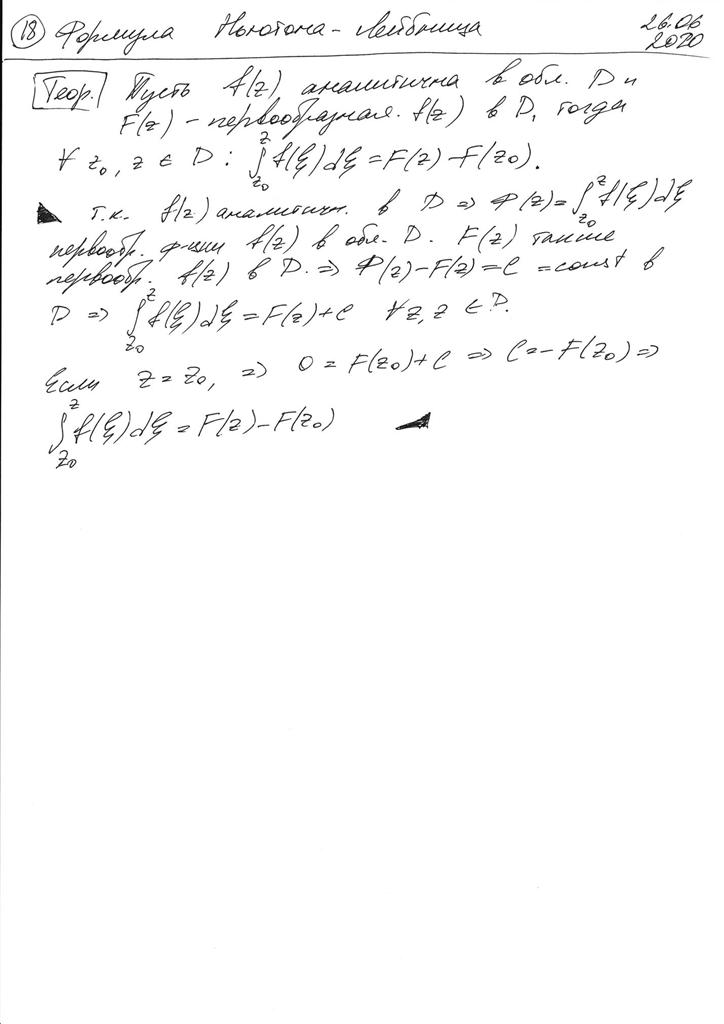 18 Формула Ньютона-Лейбница 26.06 2020
Теор. Пусть f(z) аналитична в обл. D и
F(z) - первообразная f(z) в D, тогда
∀ z₀, z ∈ D : ∫_{z₀}^{z} f(ξ)dξ = F(z) - F(z₀).
Т.к. f(z) аналитичн. в D ⇒ Φ(z) = ∫_{z₀}^{z} f(ξ)dξ
первообр. ф-ции f(z) в обл. D. F(z) также
первообр. f(z) в D. ⇒ Φ(z) - F(z) = C = const в
D ⇒ ∫_{z₀}^{z} f(ξ)dξ = F(z) + C ∀ z, z ∈ D.
Если z = z₀, ⇒ 0 = F(z₀) + C ⇒ C = -F(z₀) ⇒
∫_{z₀}^{z} f(ξ)dξ = F(z) - F(z₀)